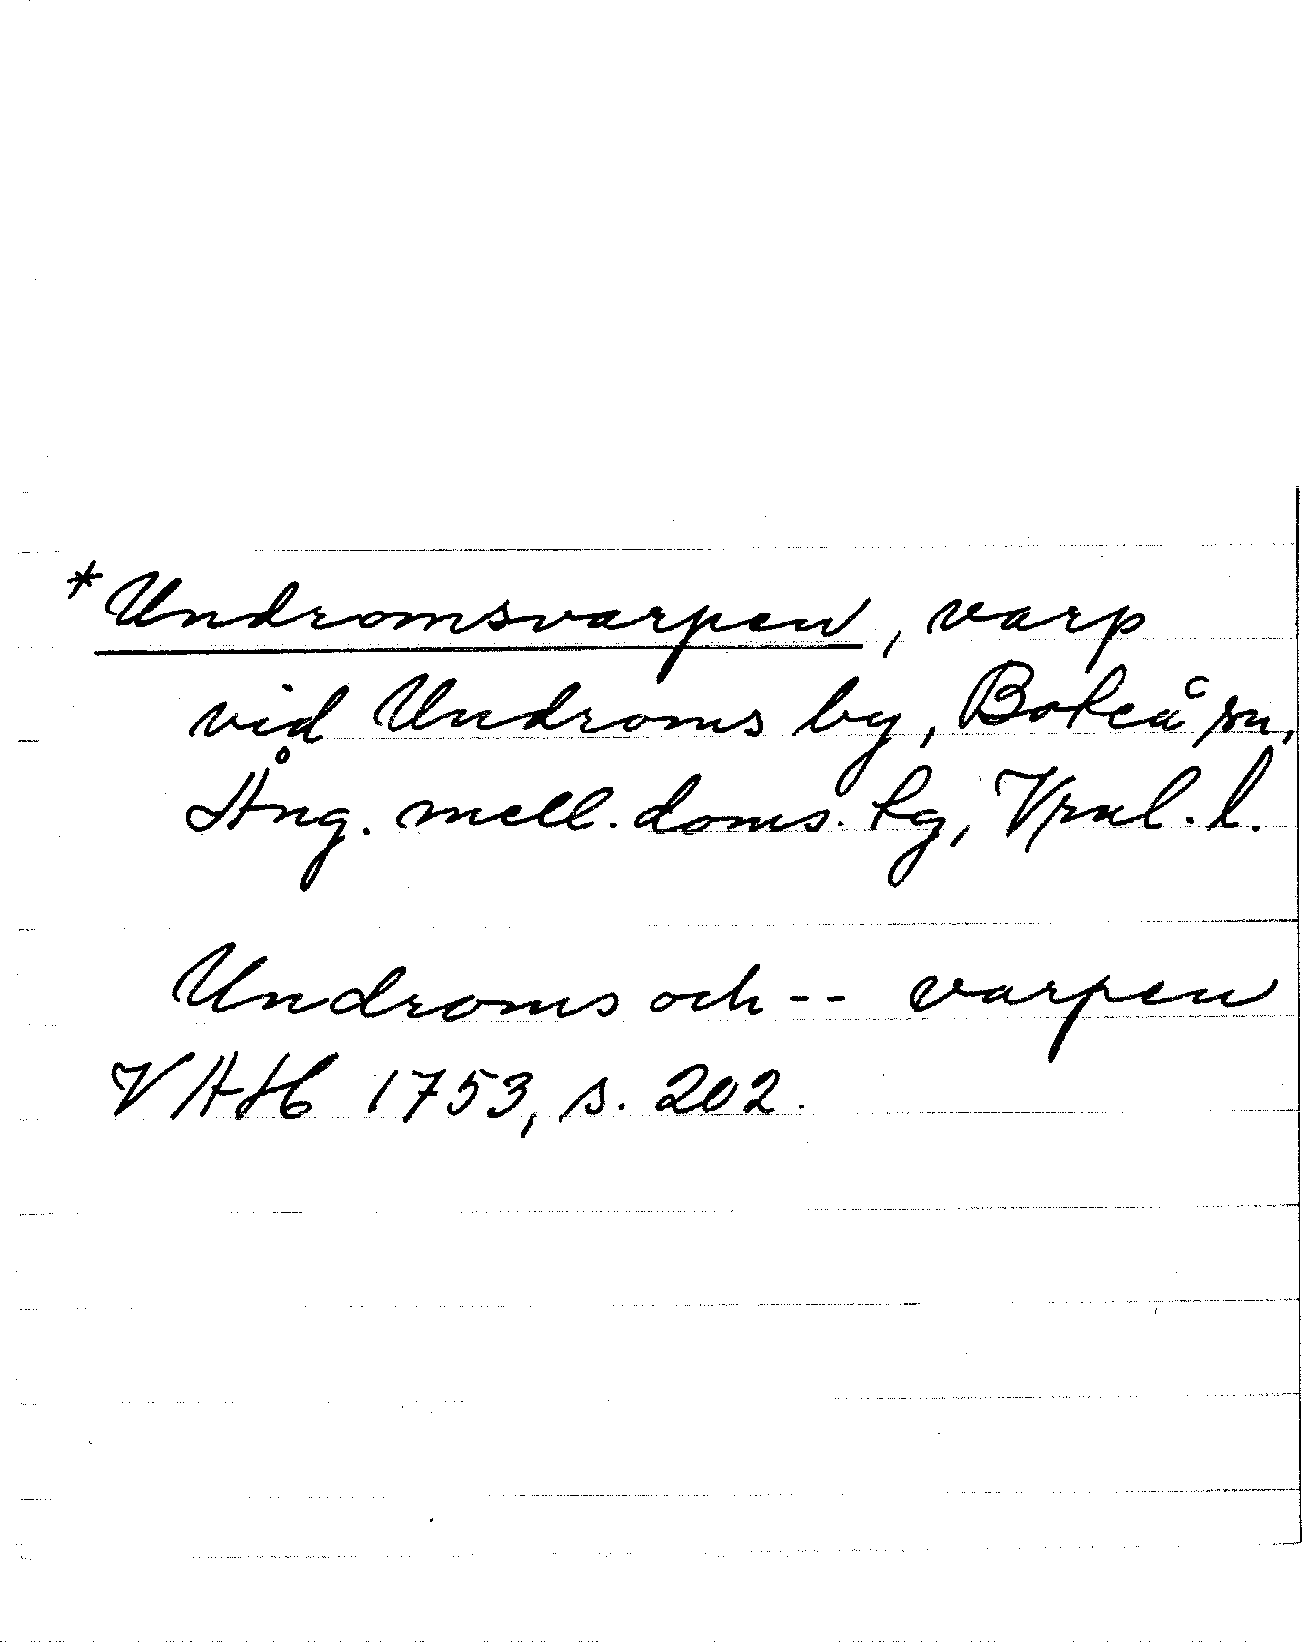 *Undromsvarpen, varp
vid Undroms by, Boteå sn,
Ång. mell. doms. tg, Vrnl. l.
Undroms och -- varpen
VAH 1753, s. 202.